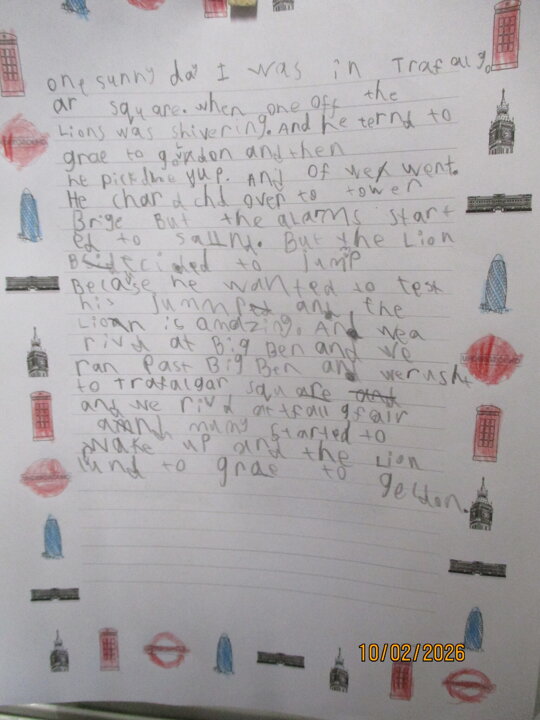 one sunny day I was in Trafalg
ar square. when one off the
Lions was shivering. And he ternd to
grae to goldon and then
he pick me yup. And of we went.
He char d chd over to tower
Brige But the alarms start
ed to saund. But the Lion
decided to jump
Because he wanted to test
his Jummped and the
Lion is amazing. And wea
rivd at Big Ben and we
ran Past Big Ben and werush
to trafalgar square and
and we rivd at trafl gfair
and muny started to
wake up and the Lion
turnd to grae to
geldon.
UNDERGROUND
10/02/2026